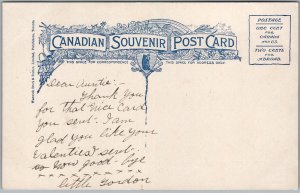 CANADIAN SOUVENIR POST CARD
THIS SPACE FOR CORRESPONDENCE
THIS SPACE FOR ADDRESS ONLY
POSTAGE
ONE CENT
FOR
CANADA
AND U.S.
TWO CENTS
FOR
ABROAD.
Dear Auntie:-
Thank you
for that nice Card
you sent. I am
glad you like your
Valentine I sent.
good-bye
little Gordon